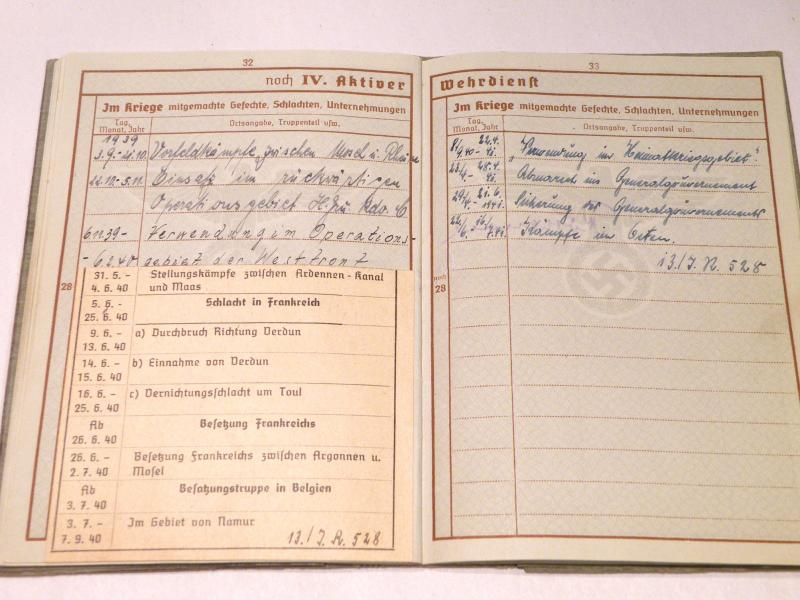 32
noch IV. Aktiver
Im Kriege mitgemachte Gefechte, Schlachten, Unternehmungen
Tag, Monat, Jahr
Ortsangabe, Truppenteil usw.
1939
Vorfeldkämpfe zwischen Mosel u. Rhein
Einsatz im rückwärtigen
Operationsgebiet H.Gr. Kdo. C
6.11.39- Verwendung im Operations-
gebiet der Westfront
28
31. 5. - Stellungskämpfe zwischen Ardennen-Kanal
4. 6. 40 und Maas
5. 6. - Schlacht in Frankreich
25. 6. 40
9. 6. - a) Durchbruch Richtung Verdun
13. 6. 40
14. 6. - b) Einnahme von Verdun
15. 6. 40
16. 6. - c) Vernichtungsschlacht um Toul
25. 6. 40
Ab Besetzung Frankreichs
26. 6. 40
26. 6. - Besetzung Frankreichs zwischen Argonnen u.
2. 7. 40 Mosel
Ab Besatzungstruppe in Belgien
3. 7. 40
3. 7. - Im Gebiet von Namur
7. 9. 40 13./J.R. 528
33
Wehrdienst
Im Kriege mitgemachte Gefechte, Schlachten, Unternehmungen
Tag, Monat, Jahr
Ortsangabe, Truppenteil usw.
"Verwendung im Heimatkriegsgebiet".
Abmarsch ins Generalgouvernement
Sicherung des Generalgouvernements
Kämpfe im Osten.
13./J.R. 528
noch
28